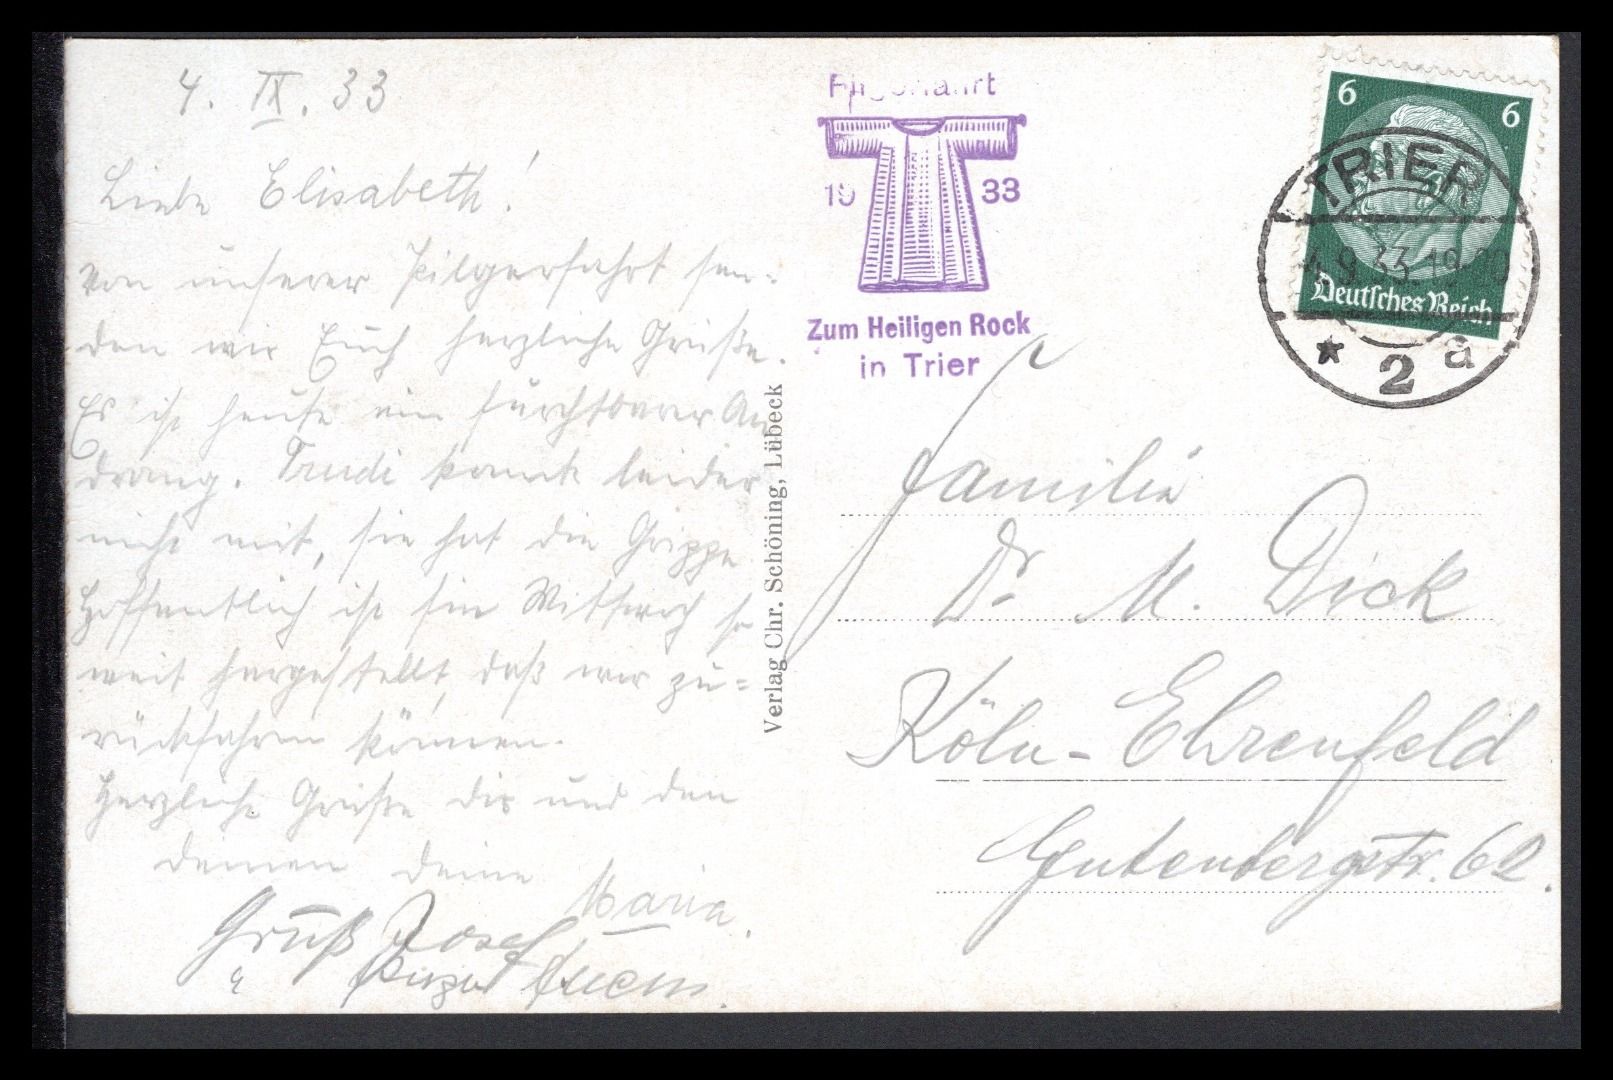 4. IX. 33
Liebe Elisabeth!
Von unserer Pilgerfahrt sen-
den wir Euch herzliche Grüße.
Es ist heute ein furchtbarer An
drang. Trudi konnte leider
nicht mit, sie hat die Grippe
Hoffentlich ist sie Mittwoch so
weit hergestellt, daß wir zu-
rückfahren können.
Herzliche Grüße dir und den
deinen deine Maria.
Gruß Josef
Pilgerfahrt
19 33
Zum Heiligen Rock
in Trier
Verlag Chr. Schöning, Lübeck
6 6
Deutsches Reich
TRIER
4.9.33.19-20
* 2 a
Familie
Dr. M. Dick
Köln-Ehrenfeld
Gutenbergstr. 62.